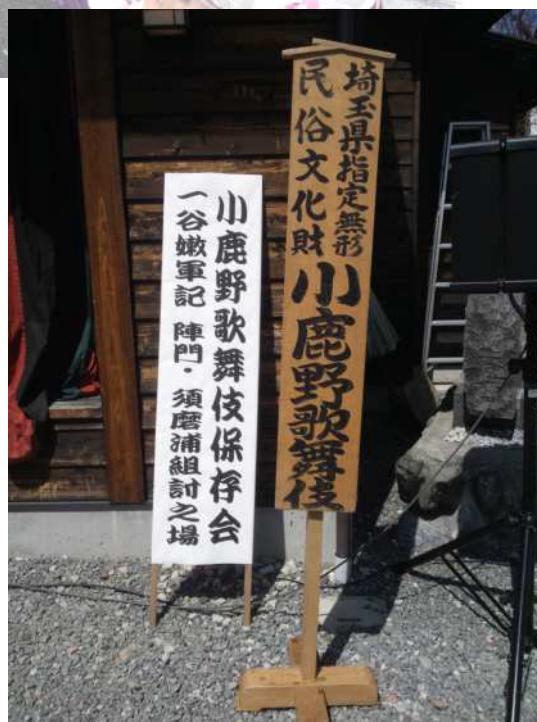 埼玉県指定無形
民俗文化財
小鹿野歌舞伎
小鹿野歌舞伎保存会
一谷嫩軍記 陣門・須磨浦組討之場